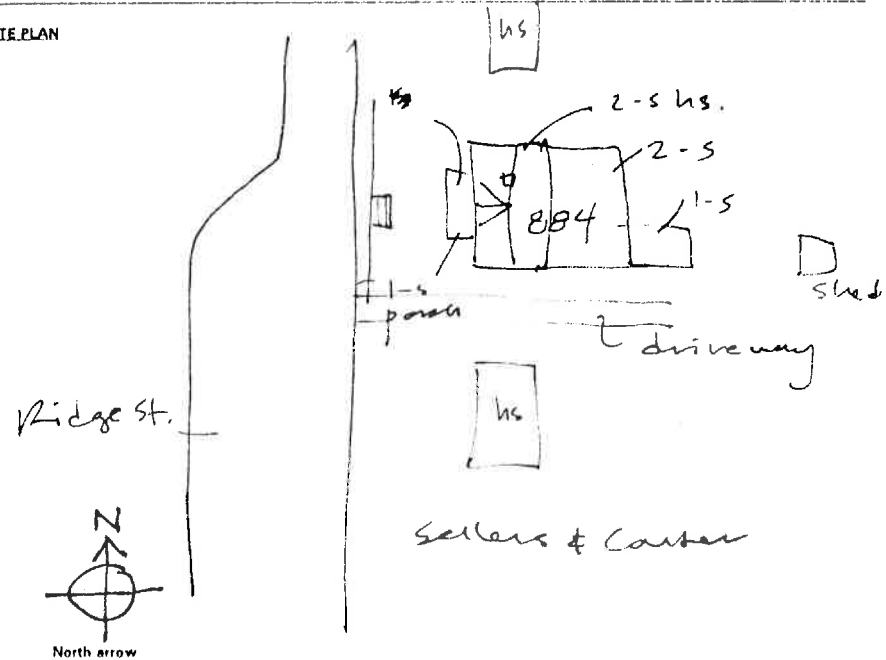 TE PLAN
hs
2-s hs.
2-s
1-s
884
shed
1-s
porch
driveway
Ridge St.
hs
Sellers & Carter
N
North arrow